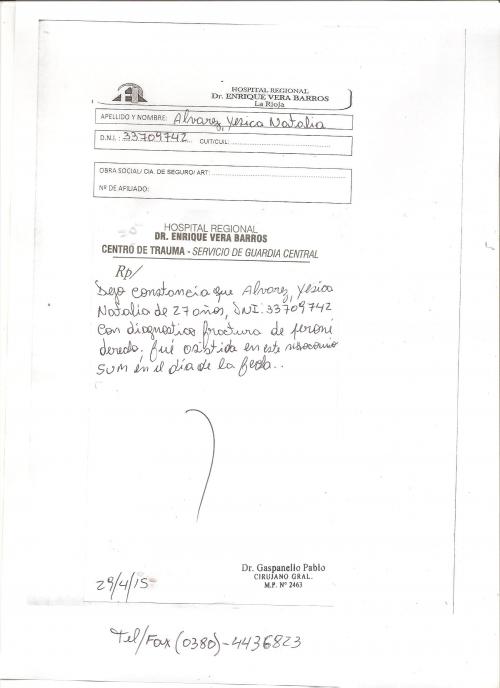 HOSPITAL REGIONAL
Dr. ENRIQUE VERA BARROS
La Rioja
APELLIDO Y NOMBRE: Alvarez, Yesica Natalia
D.N.I.: 33709742 CUIT/CUIL:
OBRA SOCIAL/ CIA. DE SEGURO/ ART:
Nº DE AFILIADO:
HOSPITAL REGIONAL
DR. ENRIQUE VERA BARROS
CENTRO DE TRAUMA - SERVICIO DE GUARDIA CENTRAL
Rp/
Dejo constancia que Alvarez, Yesica
Natalia de 27 años, DNI: 33709742
con diagnostico fractura de peroné
derecho, fué asistida en este nosocomio
SUM en el día de la fecha..
29/4/15
Dr. Gaspanello Pablo
CIRUJANO GRAL.
M.P. Nº 2463
Tel/Fax (0380)-4436823